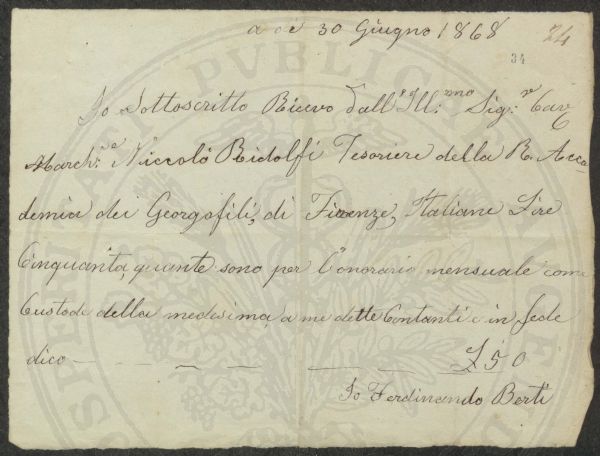 a dì 30 Giugno 1868
24
34
Io Sottoscritto Ricevo dall'Ill:mo Sig:re Cav
March:se Niccolò Ridolfi Tesoriere della R. Acca-
demia dei Georgofili, di Firenze, Italiane Lire
Cinquanta, quante sono per l'onorario mensuale come
Custode della medesima, a me dette Contanti e in fede
dico — £50
Io Ferdinando Berti